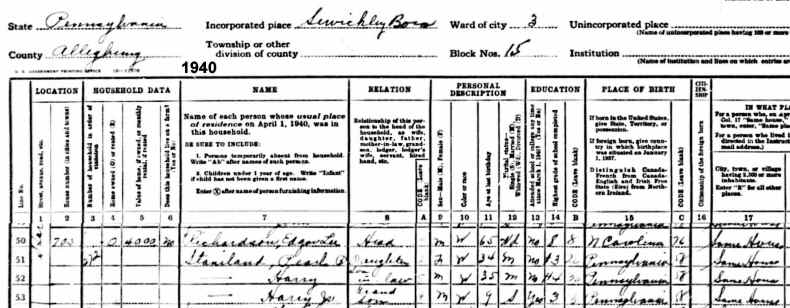 State Pennsylvania Incorporated place Sewickley Boro Ward of city 3 Unincorporated place
(Name of unincorporated place having 100 or more
County Allegheny Township or other division of county Block Nos. 15 Institution
(Name of institution and lines on which entries are
U. S. GOVERNMENT PRINTING OFFICE
1940
LOCATION HOUSEHOLD DATA NAME RELATION PERSONAL DESCRIPTION EDUCATION PLACE OF BIRTH CITIZENSHIP IN WHAT PL
Line No.
Street, avenue, road, etc.
House number (in cities and towns)
Number of household in order of visitation
Home owned (O) or rented (R)
Value of home, if owned, or monthly rental, if rented
Does this household live on a farm? (Yes or No)
Name of each person whose usual place of residence on April 1, 1940, was in this household.
BE SURE TO INCLUDE:
1. Persons temporarily absent from household. Write "Ab" after names of such persons.
2. Children under 1 year of age. Write "Infant" if child has not been given a first name.
Enter ⓧ after name of person furnishing information.
Relationship of this person to the head of the household, as wife, daughter, father, mother-in-law, grandson, lodger, lodger's wife, servant, hired hand, etc.
CODE (Leave blank)
Sex—Male (M), Female (F)
Color or race
Age at last birthday
Highest grade of school completed
CODE (Leave blank)
If born in the United States, give State, Territory, or possession.
If foreign born, give country in which birthplace was situated on January 1, 1937.
Distinguish Canada-French from Canada-English and Irish Free State (Eire) from Northern Ireland.
CODE (Leave blank)
Citizenship of the foreign born
For a person who, on Apr
Col. 17 "Same house,"
town, enter, "Same pla
For a person who lived i
directed in the Instruct
mail address.)
City, town, or village having 2,500 or more inhabitants. Enter "R" for all other places.
1 2 3 4 5 6 7 8 A 9 10 11 12 13 14 B 15 C 16 17
50 O 4000 No Richardson, Edgar Lee Head M W 65 Wd No 8 8 N Carolina 76 Same House
51 Staniland, Pearl Daughter F W 34 M No Pennsylvania Same House
52 — Harry Son in law M W 35 M No Pennsylvania Same House
53 — Harry Jr Grand Son M W 9 S Yes 3 Pennsylvania Same House